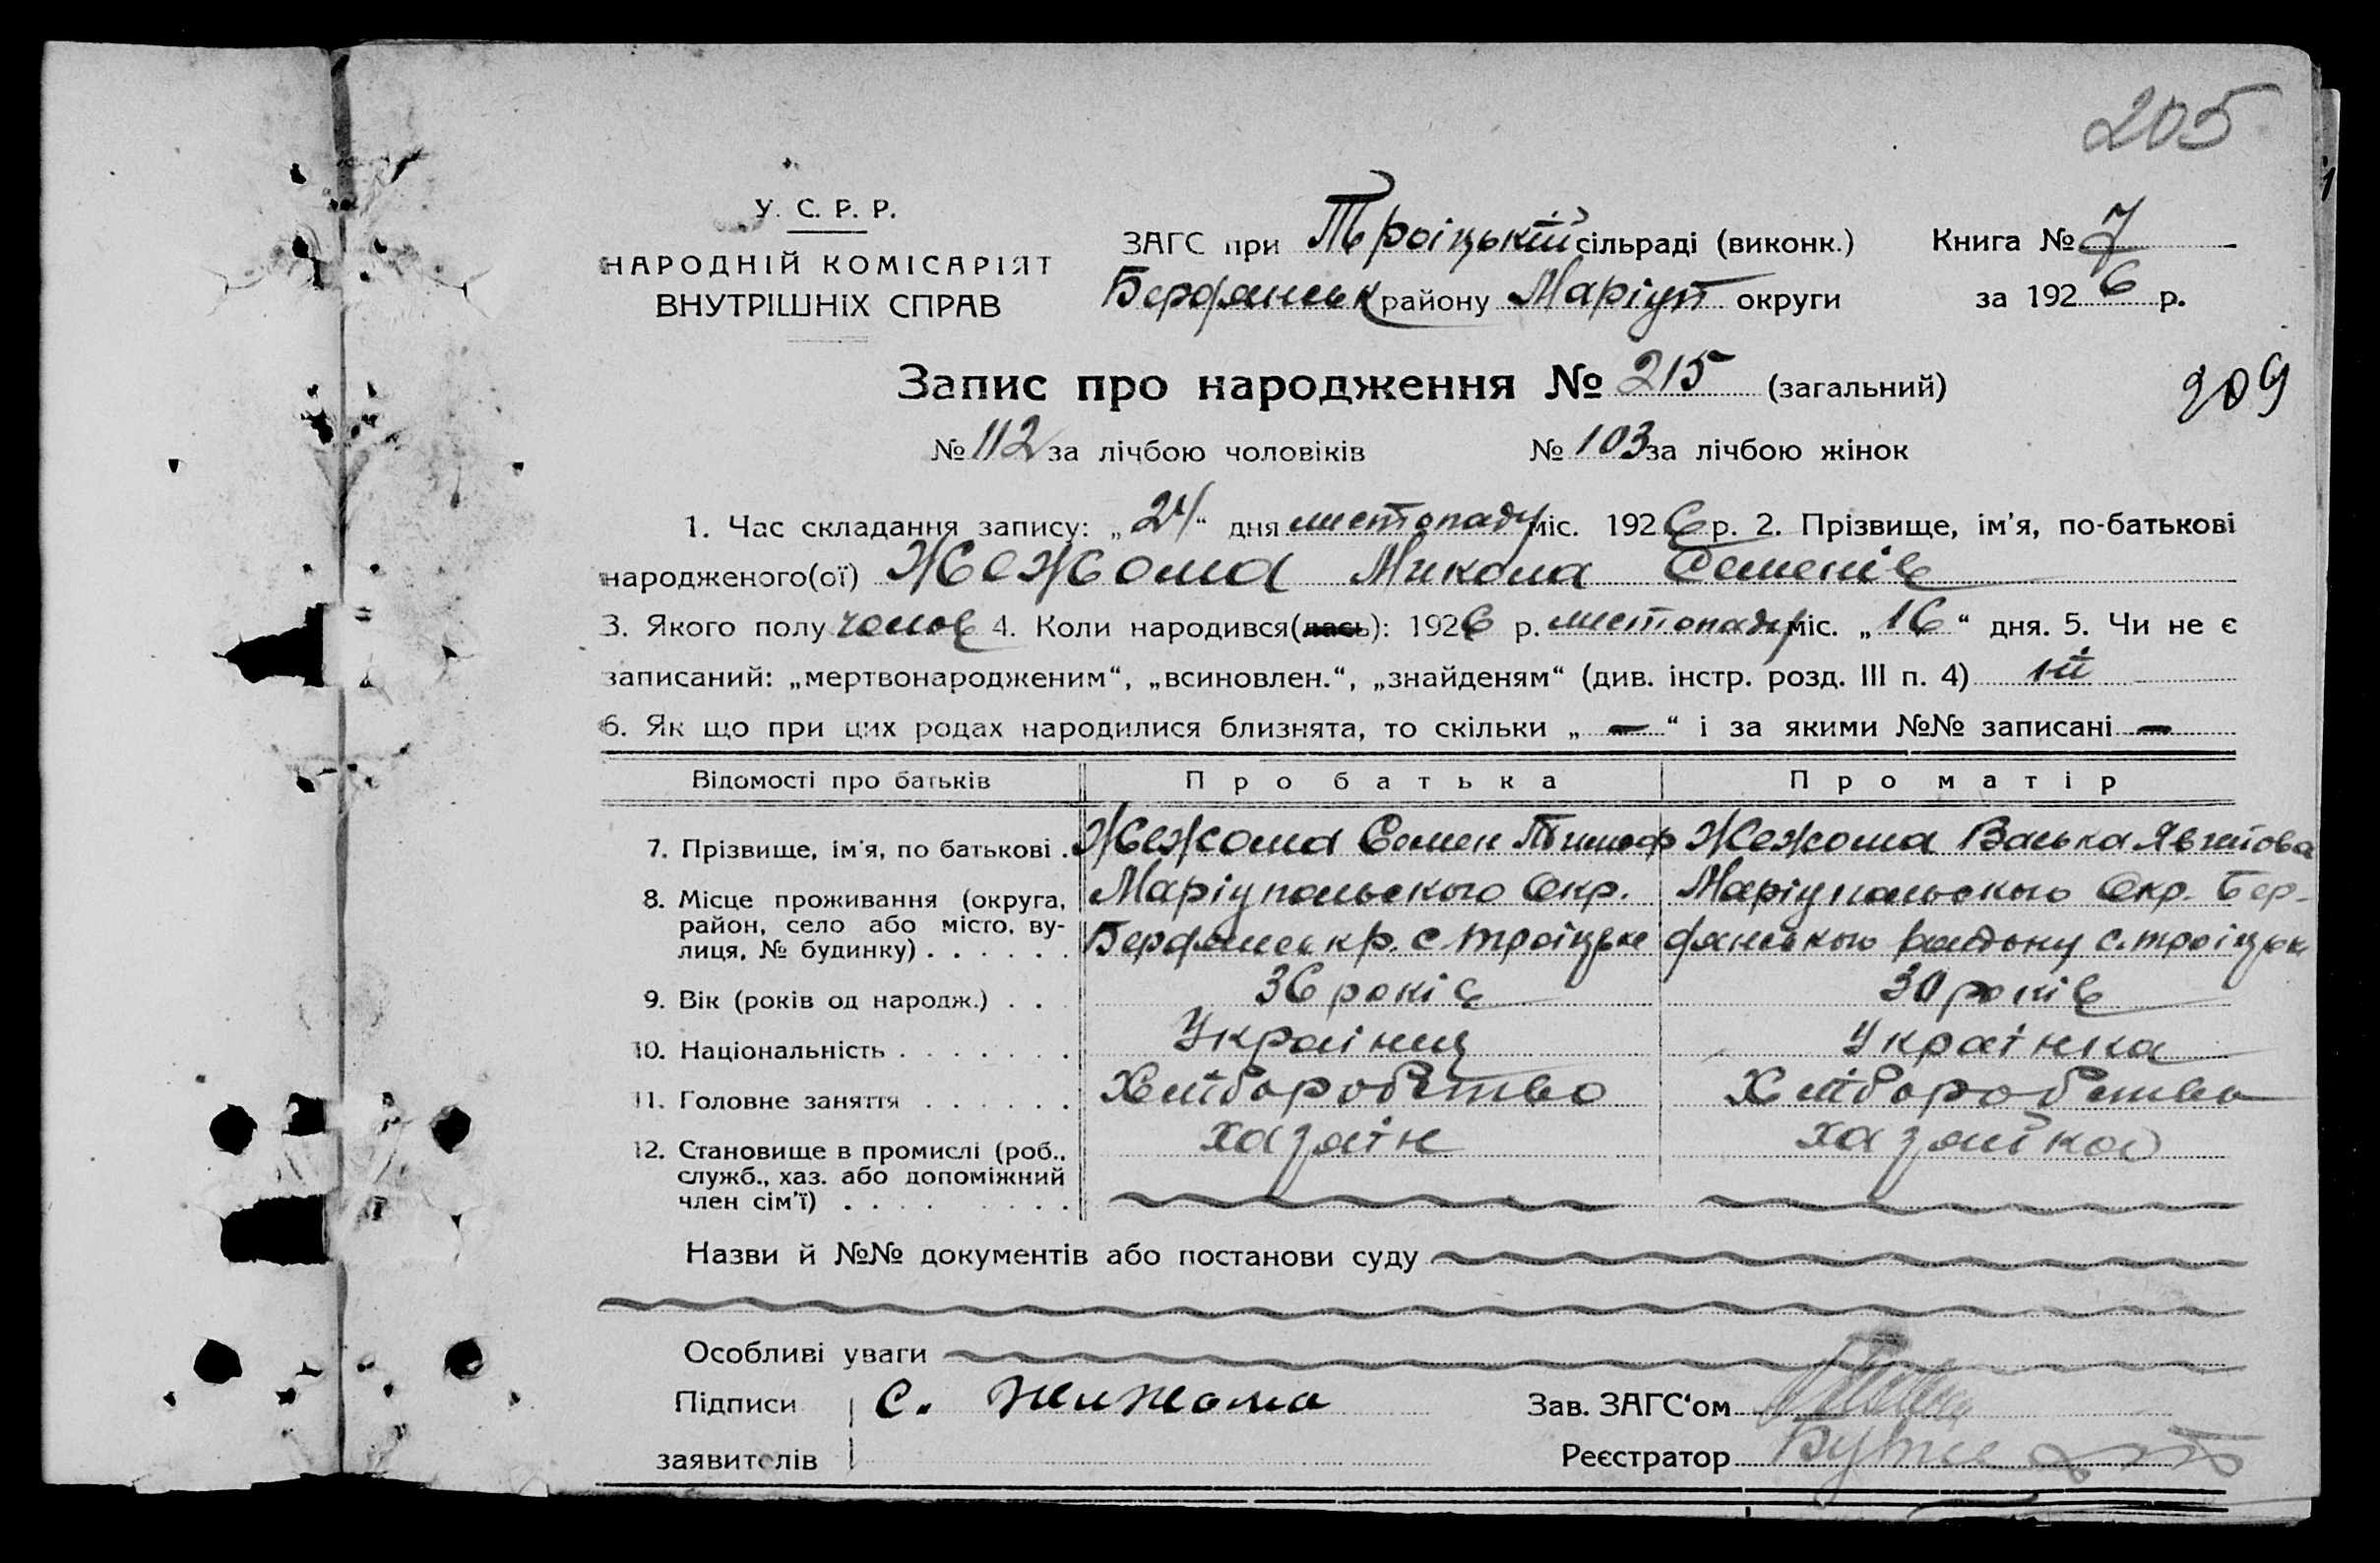 205
У. С. Р. Р.
НАРОДНІЙ КОМІСАРІЯТ
ВНУТРІШНІХ СПРАВ
ЗАГС при Троіцькій сільраді (виконк.) Книга № 7
Бердянськ району Маріуп округи за 1926 р.
Запис про народження № 215 (загальний)
209
№ 112 за лічбою чоловіків № 103 за лічбою жінок
1. Час складання запису: „24“ дня листопаду міс. 1926 р. 2. Прізвище, ім'я, по-батькові
народженого(ої) Жежома Микола Семенів
3. Якого полу чолов 4. Коли народився(лась): 1926 р. листопаду міс. „16“ дня. 5. Чи не є
записаний: „мертвонародженим“, „всиновлен.“, „знайденям“ (див. інстр. розд. III п. 4) ні
6. Як що при цих родах народилися близнята, то скільки „ — “ і за якими №№ записані —
Відомості про батьків Про батька Про матір
7. Прізвище, ім'я, по батькові . Жежома Семен Тимоф Жежома Васька
8. Місце проживання (округа, Маріупольского Окр. Маріупольского Окр. Бер-
район, село або місто, ву-
лиця, № будинку) . . . . . . Бердянськ р. с Троіцьке дянського району с. Троіцьк
9. Вік (років од народж.) . . 36 років 30 років
10. Національність . . . . . . . Украінец Украінка
11. Головне заняття . . . . . . Хліборобство Хліборобство
12. Становище в промислі (роб., хазяін хазяйка
служб., хаз. або допоміжний
член сім'ї) . . . . . . . .
Назви й №№ документів або постанови суду
Особливі уваги
Підписи С. Жижома Зав. ЗАГС'ом
заявителів Реєстратор